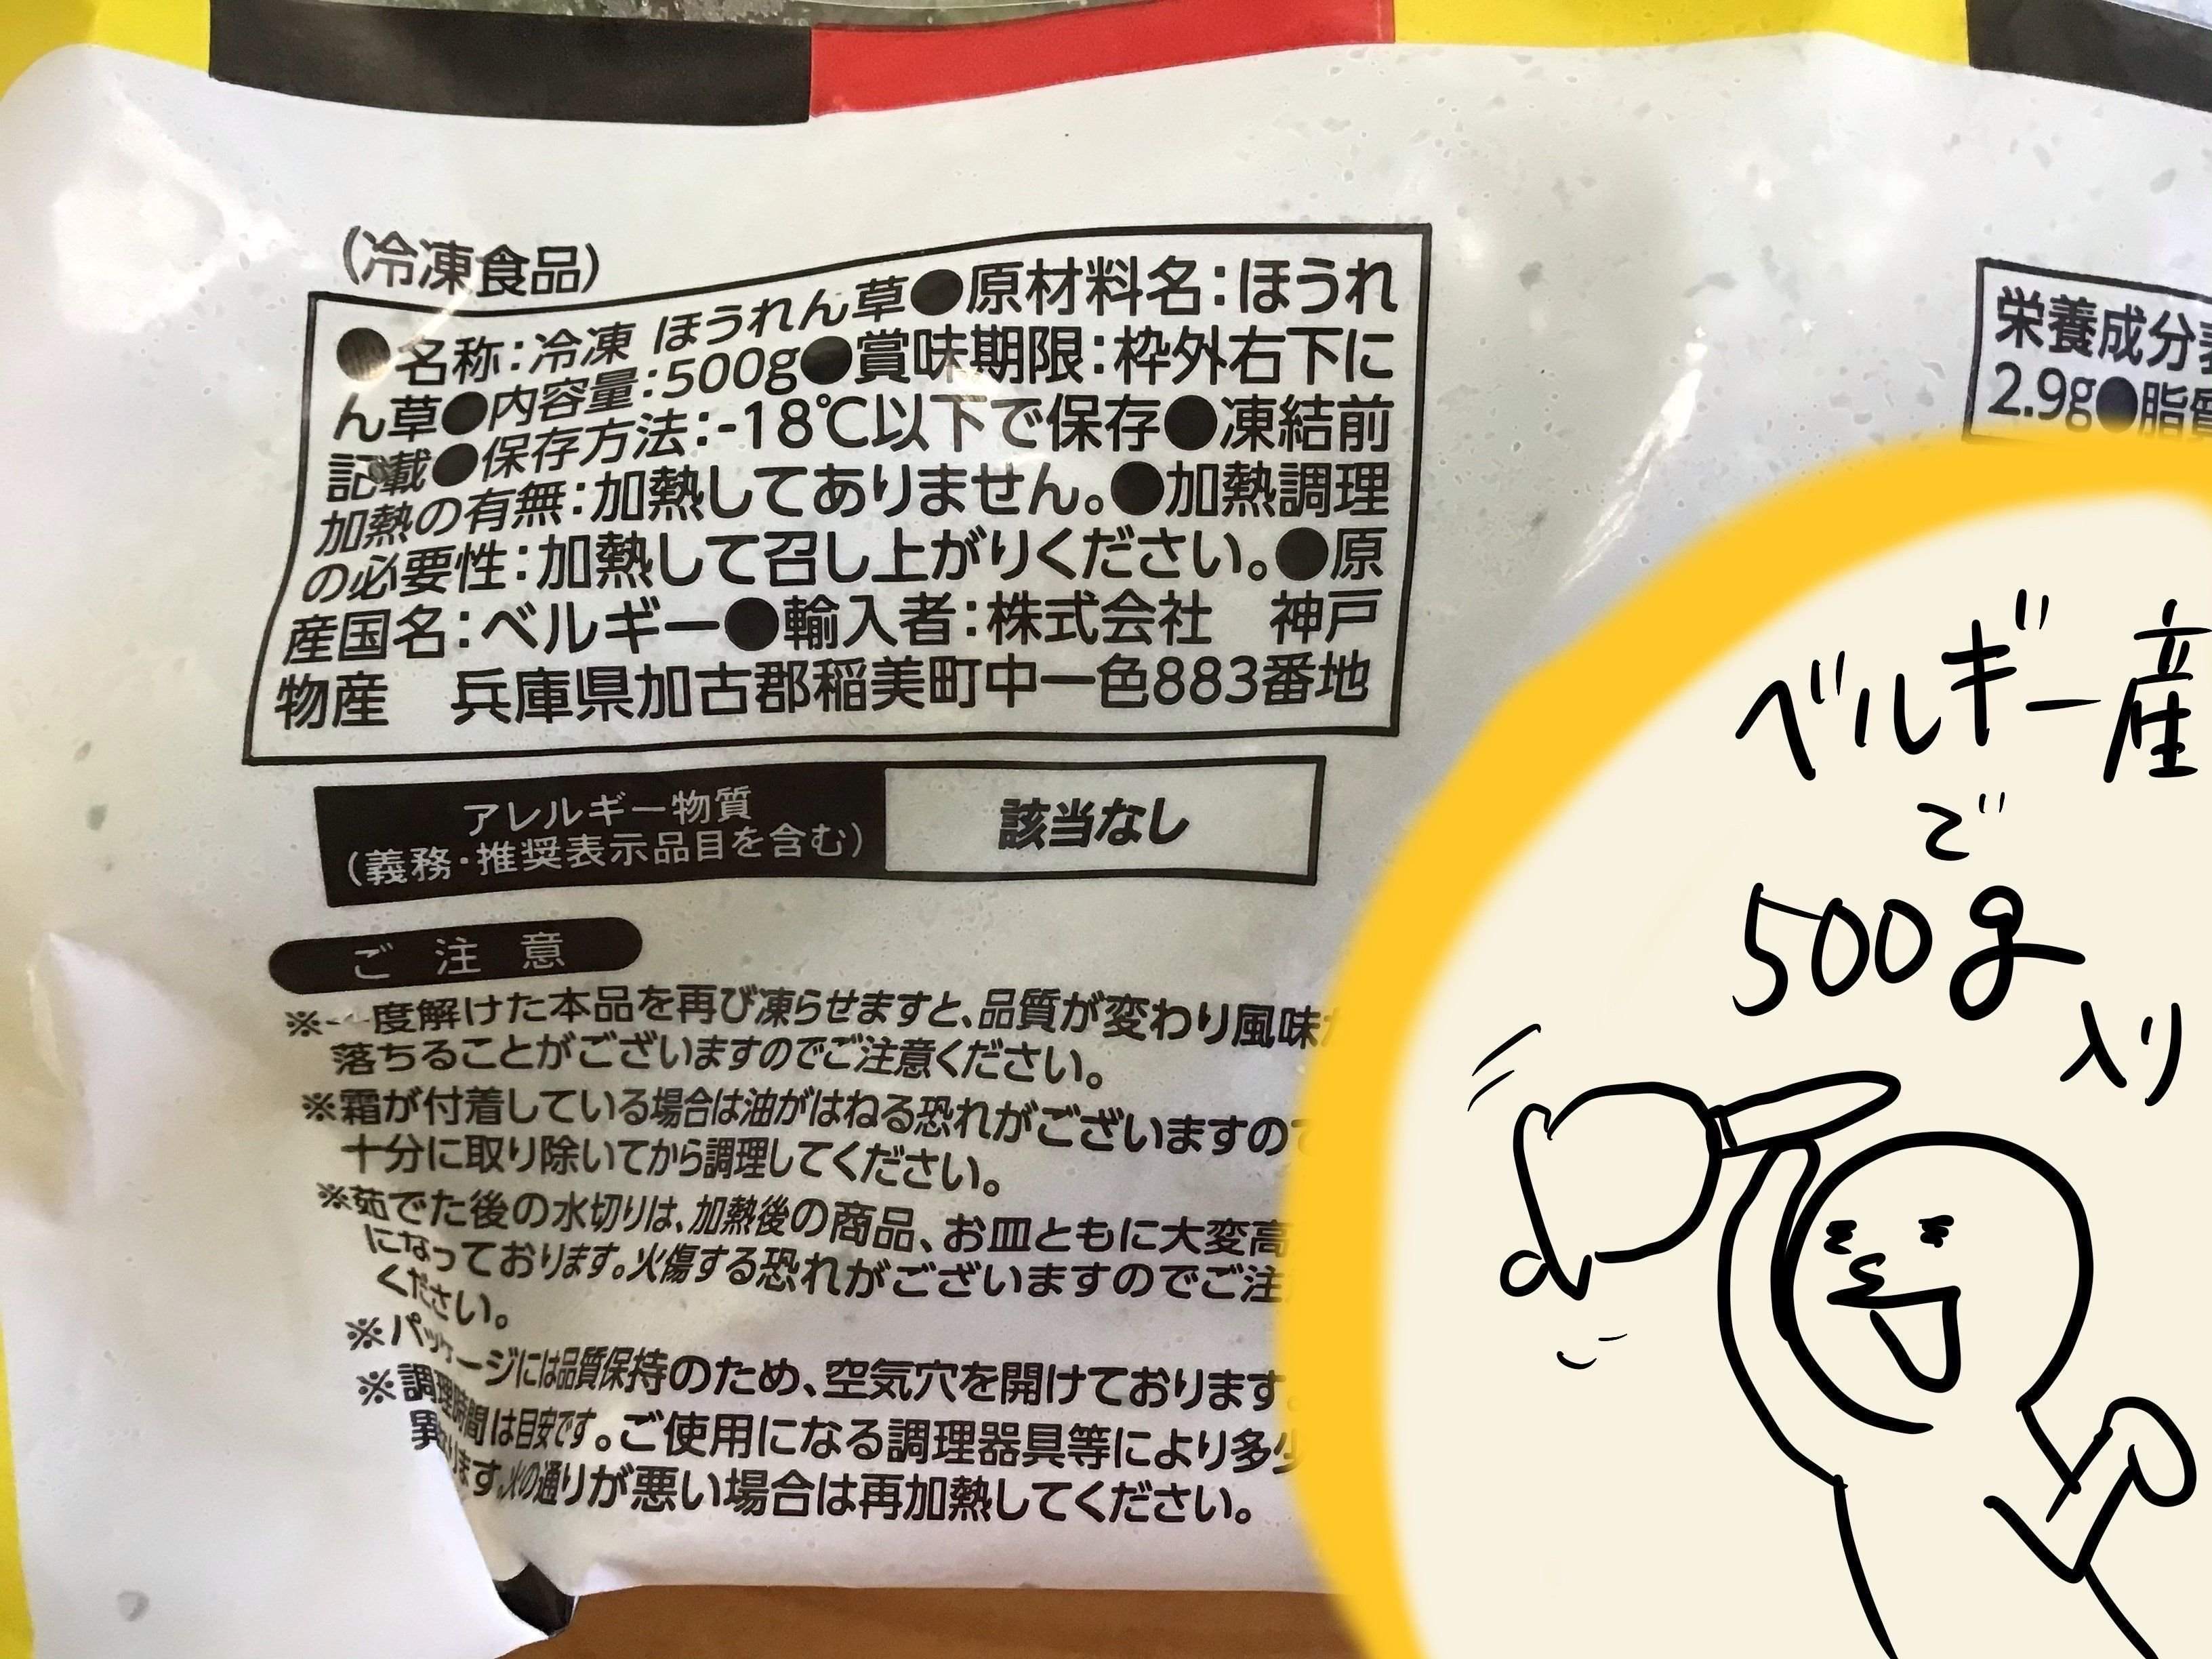 (冷凍食品)
●名称:冷凍 ほうれん草●原材料名:ほうれ
ん草●内容量:500g●賞味期限:枠外右下に
記載●保存方法:-18℃以下で保存●凍結前
加熱の有無:加熱してありません。●加熱調理
の必要性:加熱して召し上がりください。●原
産国名:ベルギー●輸入者:株式会社 神戸
物産 兵庫県加古郡稲美町中一色883番地
アレルギー物質
(義務・推奨表示品目を含む)
該当なし
ご注意
※一度解けた本品を再び凍らせますと、品質が変わり風味
落ちることがございますのでご注意ください。
※霜が付着している場合は油がはねる恐れがございますので
十分に取り除いてから調理してください。
※茹でた後の水切りは、加熱後の商品、お皿ともに大変高
になっております。火傷する恐れがございますのでご注
ください。
※パッケージには品質保持のため、空気穴を開けております。
※調理時間は目安です。ご使用になる調理器具等により多少
異なります。火の通りが悪い場合は再加熱してください。
栄養成分表
2.9g●脂質
ベルギー産
で
500g
入り